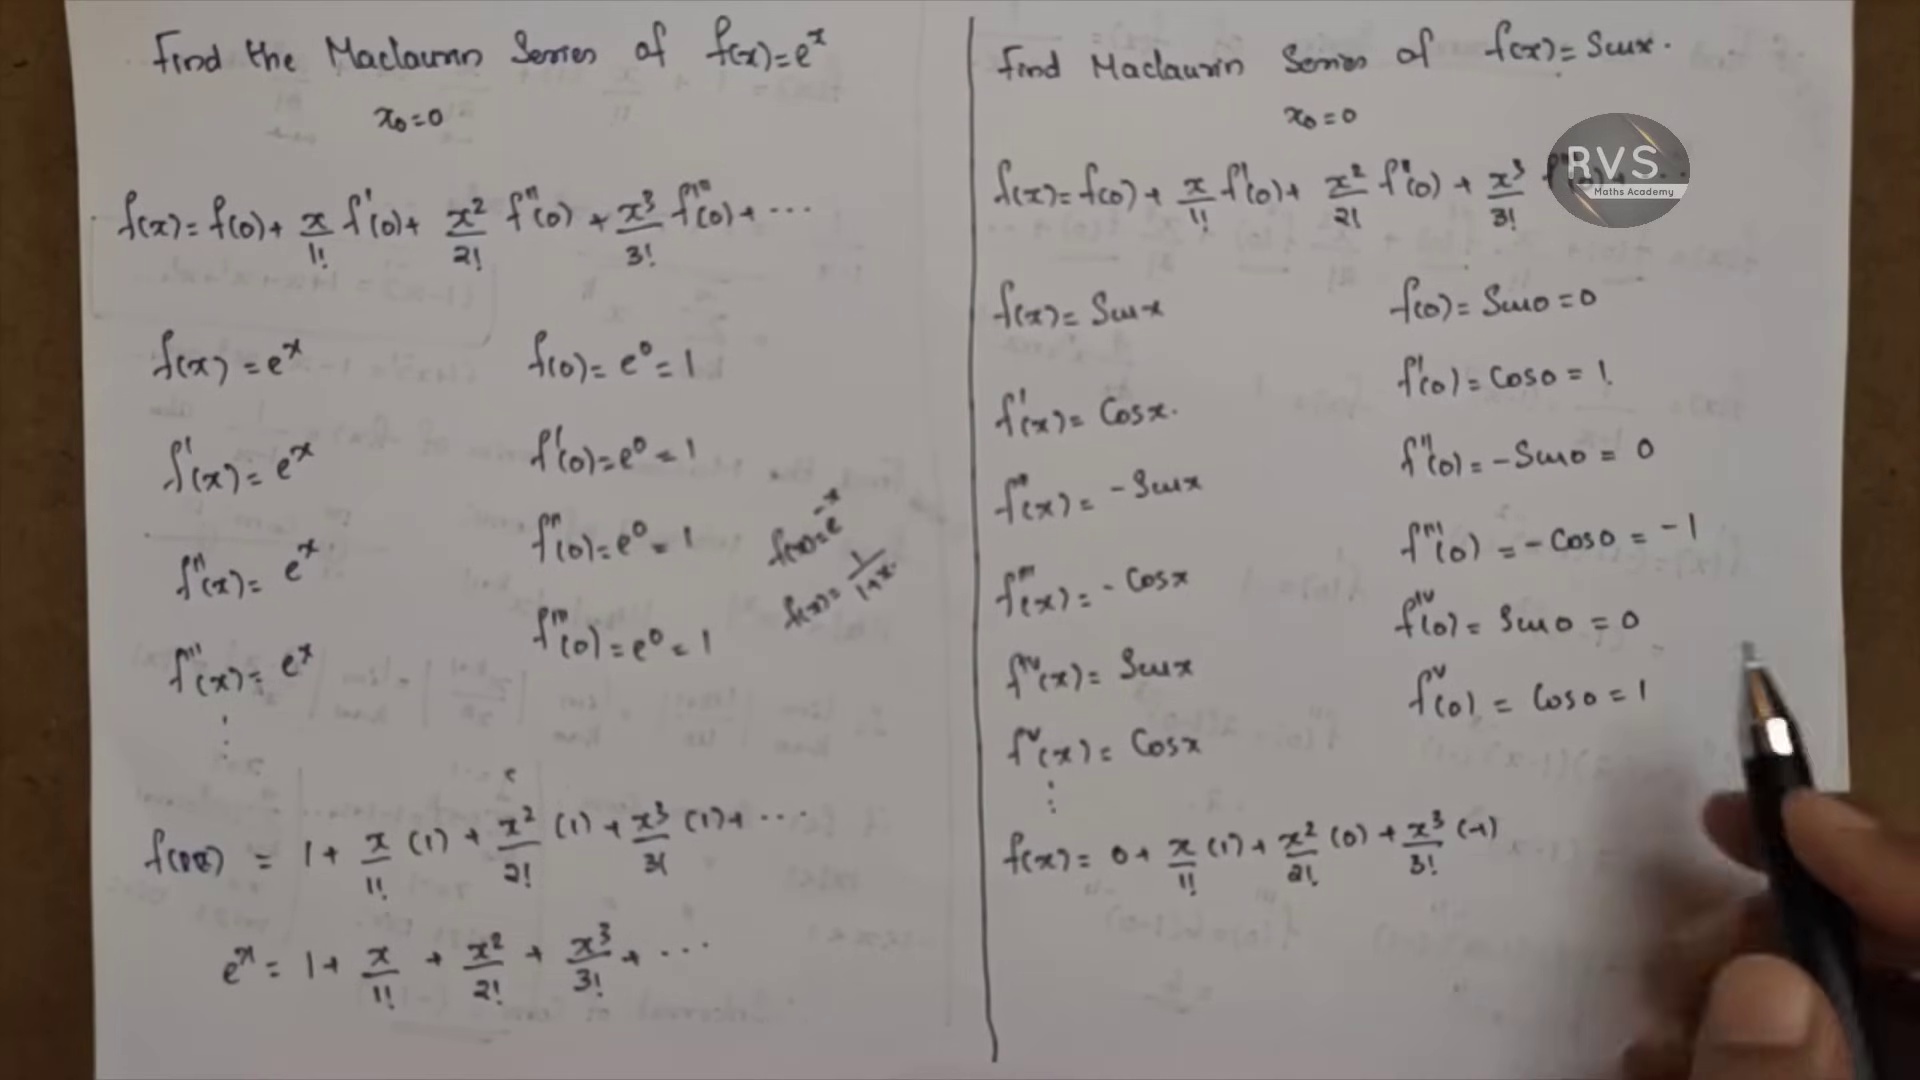 Find the Maclaurin Series of f(x)=e^x
x₀=0
f(x)=f(0)+ x/1! f'(0)+ x²/2! f''(0) + x³/3! f'''(0)+ ...
f(x)=e^x f(0)=e⁰=1
f'(x)=e^x f'(0)=e⁰=1
f''(x)=e^x f''(0)=e⁰=1
f'''(x)=e^x f'''(0)=e⁰=1
⋮
f(x)=e^-x
f(x)= 1/1+x.
= 1+ x/1! (1) + x²/2! (1)+ x³/3! (1)+ ...
e^x = 1+ x/1! + x²/2! + x³/3! + ...
Find Maclaurin Series of f(x)=Sinx.
x₀=0
RVS
Maths Academy
f(x)=f(0)+ x/1! f'(0)+ x²/2! f''(0) + x³/3!
f(x)=Sinx f(0)=Sin0=0
f'(x)=Cosx. f'(0)=Cos0=1.
f''(x)=-Sinx f''(0)=-Sin0=0
f'''(x)=-Cosx f'''(0)=-Cos0=-1
f^iv(x)=Sinx f^iv(0)=Sin0=0
f^v(x)=Cosx f^v(0)=Cos0=1
⋮
f(x)= 0+ x/1! (1)+ x²/2! (0)+ x³/3! (-1)